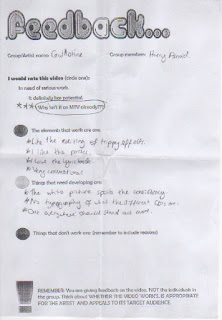 feedback...
Group/Artist name:
Group members: Harry
I would rate this video (circle one):
In need of serious work.
It definitely has potential.
*** Why isn't it on MTV already???
The elements that work are one:
* Like the editing of trippy effects.
* I like the
* Love the
* Very conventional
Things that need developing are:
* The white picture spoils the consistency
* No typography of what the different
* One should stand out more.
Things that don't work are (remember to include reasons)
REMEMBER: You are giving feedback on the video, NOT the individuals in
the group. Think about WHETHER THE VIDEO WORKS, IS APPROPRIATE
FOR THE ARTIST AND APPEALS TO ITS TARGET AUDIENCE